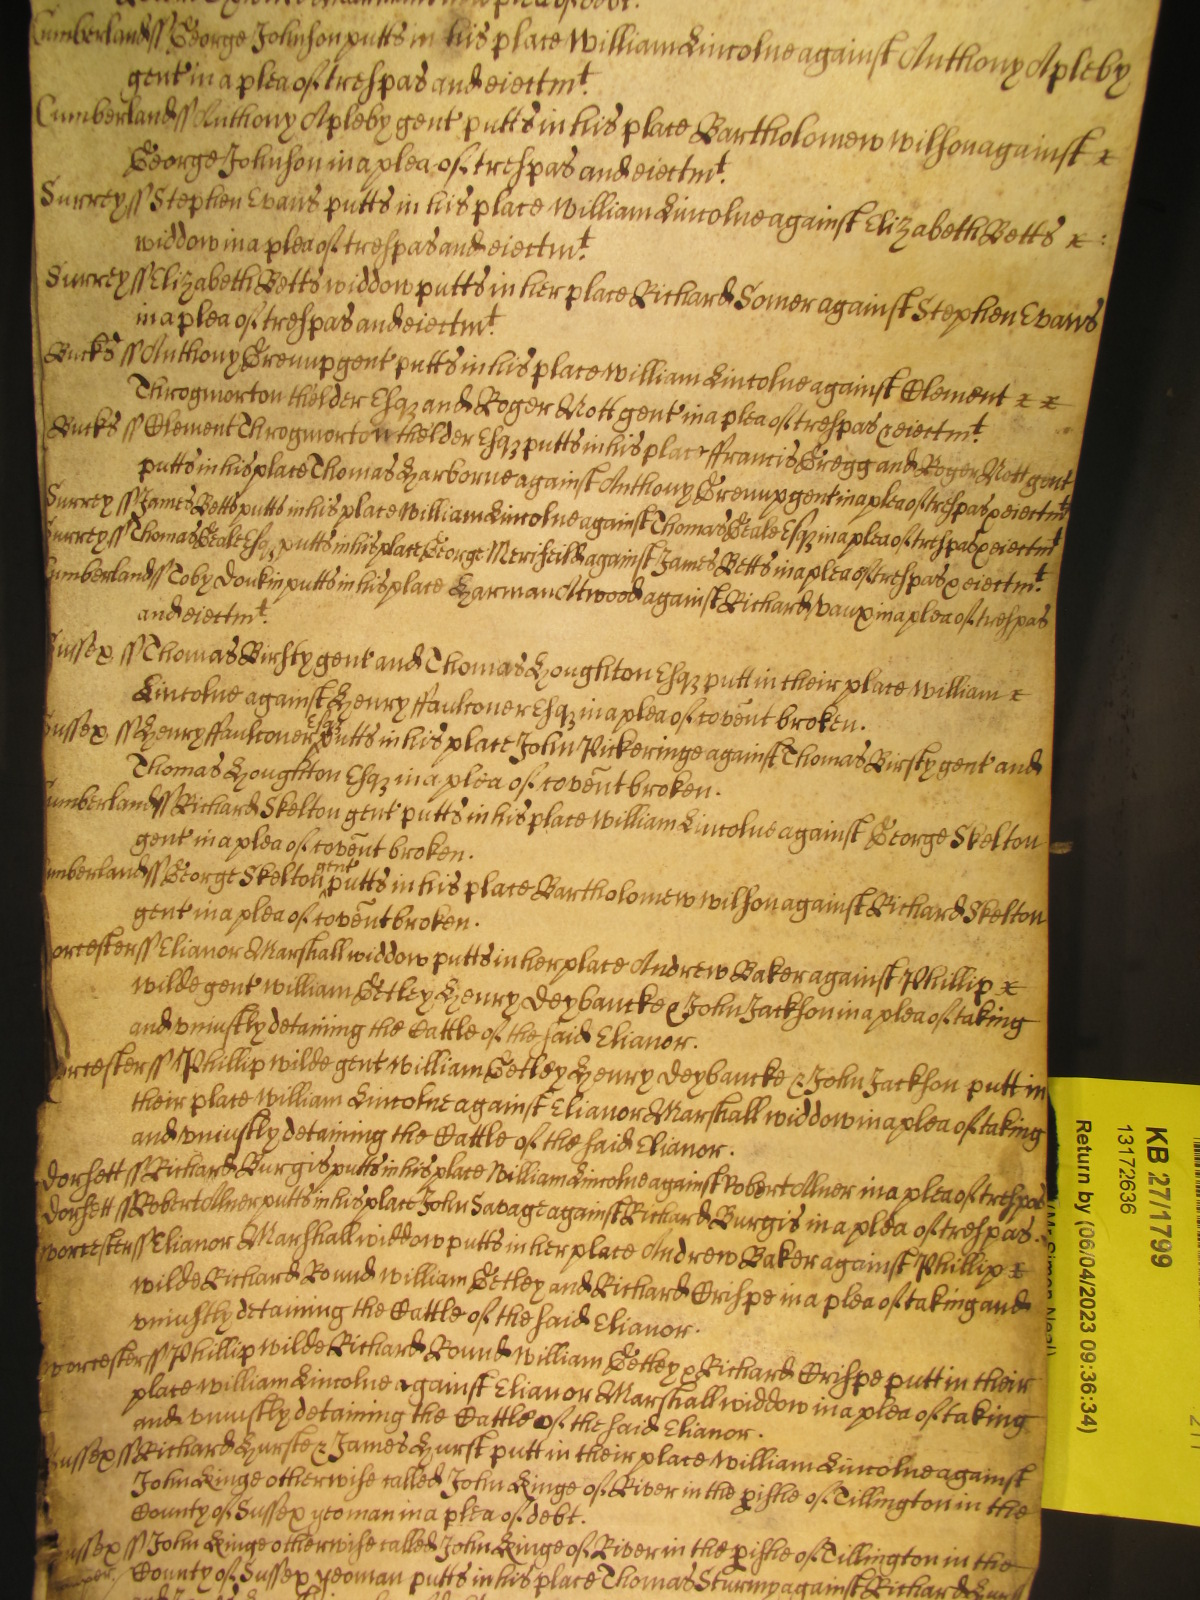 plea of debt.
Cumberland ss George Johnson putts in his place William Lincolne against Anthony Apleby
gent in a plea of trespas and eiectmt.
Cumberland ss Anthony Apleby gent putts in his place Bartholomew Wilson against x
George Johnson in a plea of trespas and eiectmt.
Surrey ss Stephen Evans putts in his place William Lincolne against Elizabeth Betts x :
widdow in a plea of trespas and eiectmt.
Surrey ss Elizabeth Betts widdow putts in her place Richard Somer against Stephen Evans
in a plea of trespas and eiectmt.
Bucks ss Anthony Grenup gent putts in his place William Lincolne against Clement x x
Throgmorton thelder Esqz and Roger Nott gent in a plea of trespas & eiectmt.
Bucks ss Clement Throgmorton thelder Esqz putts in his place ffrancis Gregg and Roger Nott gent
putts in his place Thomas Harborne against Anthony Grenup gent in a plea of trespas & eiectmt
Surrey ss James Betts putts in his place William Lincolne against Thomas Geale Esqz in a plea of trespas & eiectmt
Surrey ss Thomas Geale Esqz putts in his place George Merifeild against James Betts in a plea of trespas & eiectmt.
Cumberland ss Toby Donkin putts in his place Harman Atwood against Richard Vaux in a plea of trespas
and eiectmt.
Sussex ss Thomas Birsty gent and Thomas Houghton Esqz putt in their place William x
Lincolne against Henry ffaulconer Esqz in a plea of covent broken.
Sussex ss Henry ffaulconer Esqz putts in his place John Pickeringe against Thomas Birsty gent and
Thomas Houghton Esqz in a plea of covent broken.
Cumberland ss Richard Skelton gent putts in his place William Lincolne against George Skelton
gent in a plea of covent broken.
umberland ss George Skelton gent putts in his place Bartholomew Wilson against Richard Skelton
gent in a plea of covent broken.
orcester ss Elianor Marshall widdow putts in her place Andrew Baker against Phillip x
Wilde gent William Getley Henry Deybancke & John Jackson in a plea of taking
and vniustly detaining the Cattle of the said Elianor.
orcester ss Phillip Wilde gent William Getley Henry Deybancke & John Jackson putt in
their place William Lincolne against Elianor Marshall widdow in a plea of taking
and vniustly detaining the Cattle of the said Elianor.
Dorsett ss Richard Burgis putts in his place William Lincolne against Robert Alner in a plea of trespas
Dorsett ss Robert Alner putts in his place John Savage against Richard Burgis in a plea of trespas.
Worcester ss Elianor Marshall widdow putts in her place Andrew Baker against Phillip x
Wilde Richard Round William Getley and Richard Crispe in a plea of taking and
vniustly detaining the Cattle of the said Elianor.
Worcester ss Phillip Wilde Richard Round William Getley & Richard Crispe putt in their
place William Lincolne against Elianor Marshall widdow in a plea of taking
and vniustly detaining the Cattle of the said Elianor.
Sussex ss Richard Hurst & James Hurst putt in their place William Lincolne against
John Kinge otherwise called John Kinge of River in the pishe of Tillington in the
County of Sussex yeoman in a plea of debt.
ussex ss John Kinge otherwise called John Kinge of River in the pishe of Tillington in the
County of Sussex yeoman putts in his place Thomas Sturmy against Richard Hurst
KB 27/1799
13172636
Return by (06/04/2023 09:36:34)
(Mr Simon Neal)